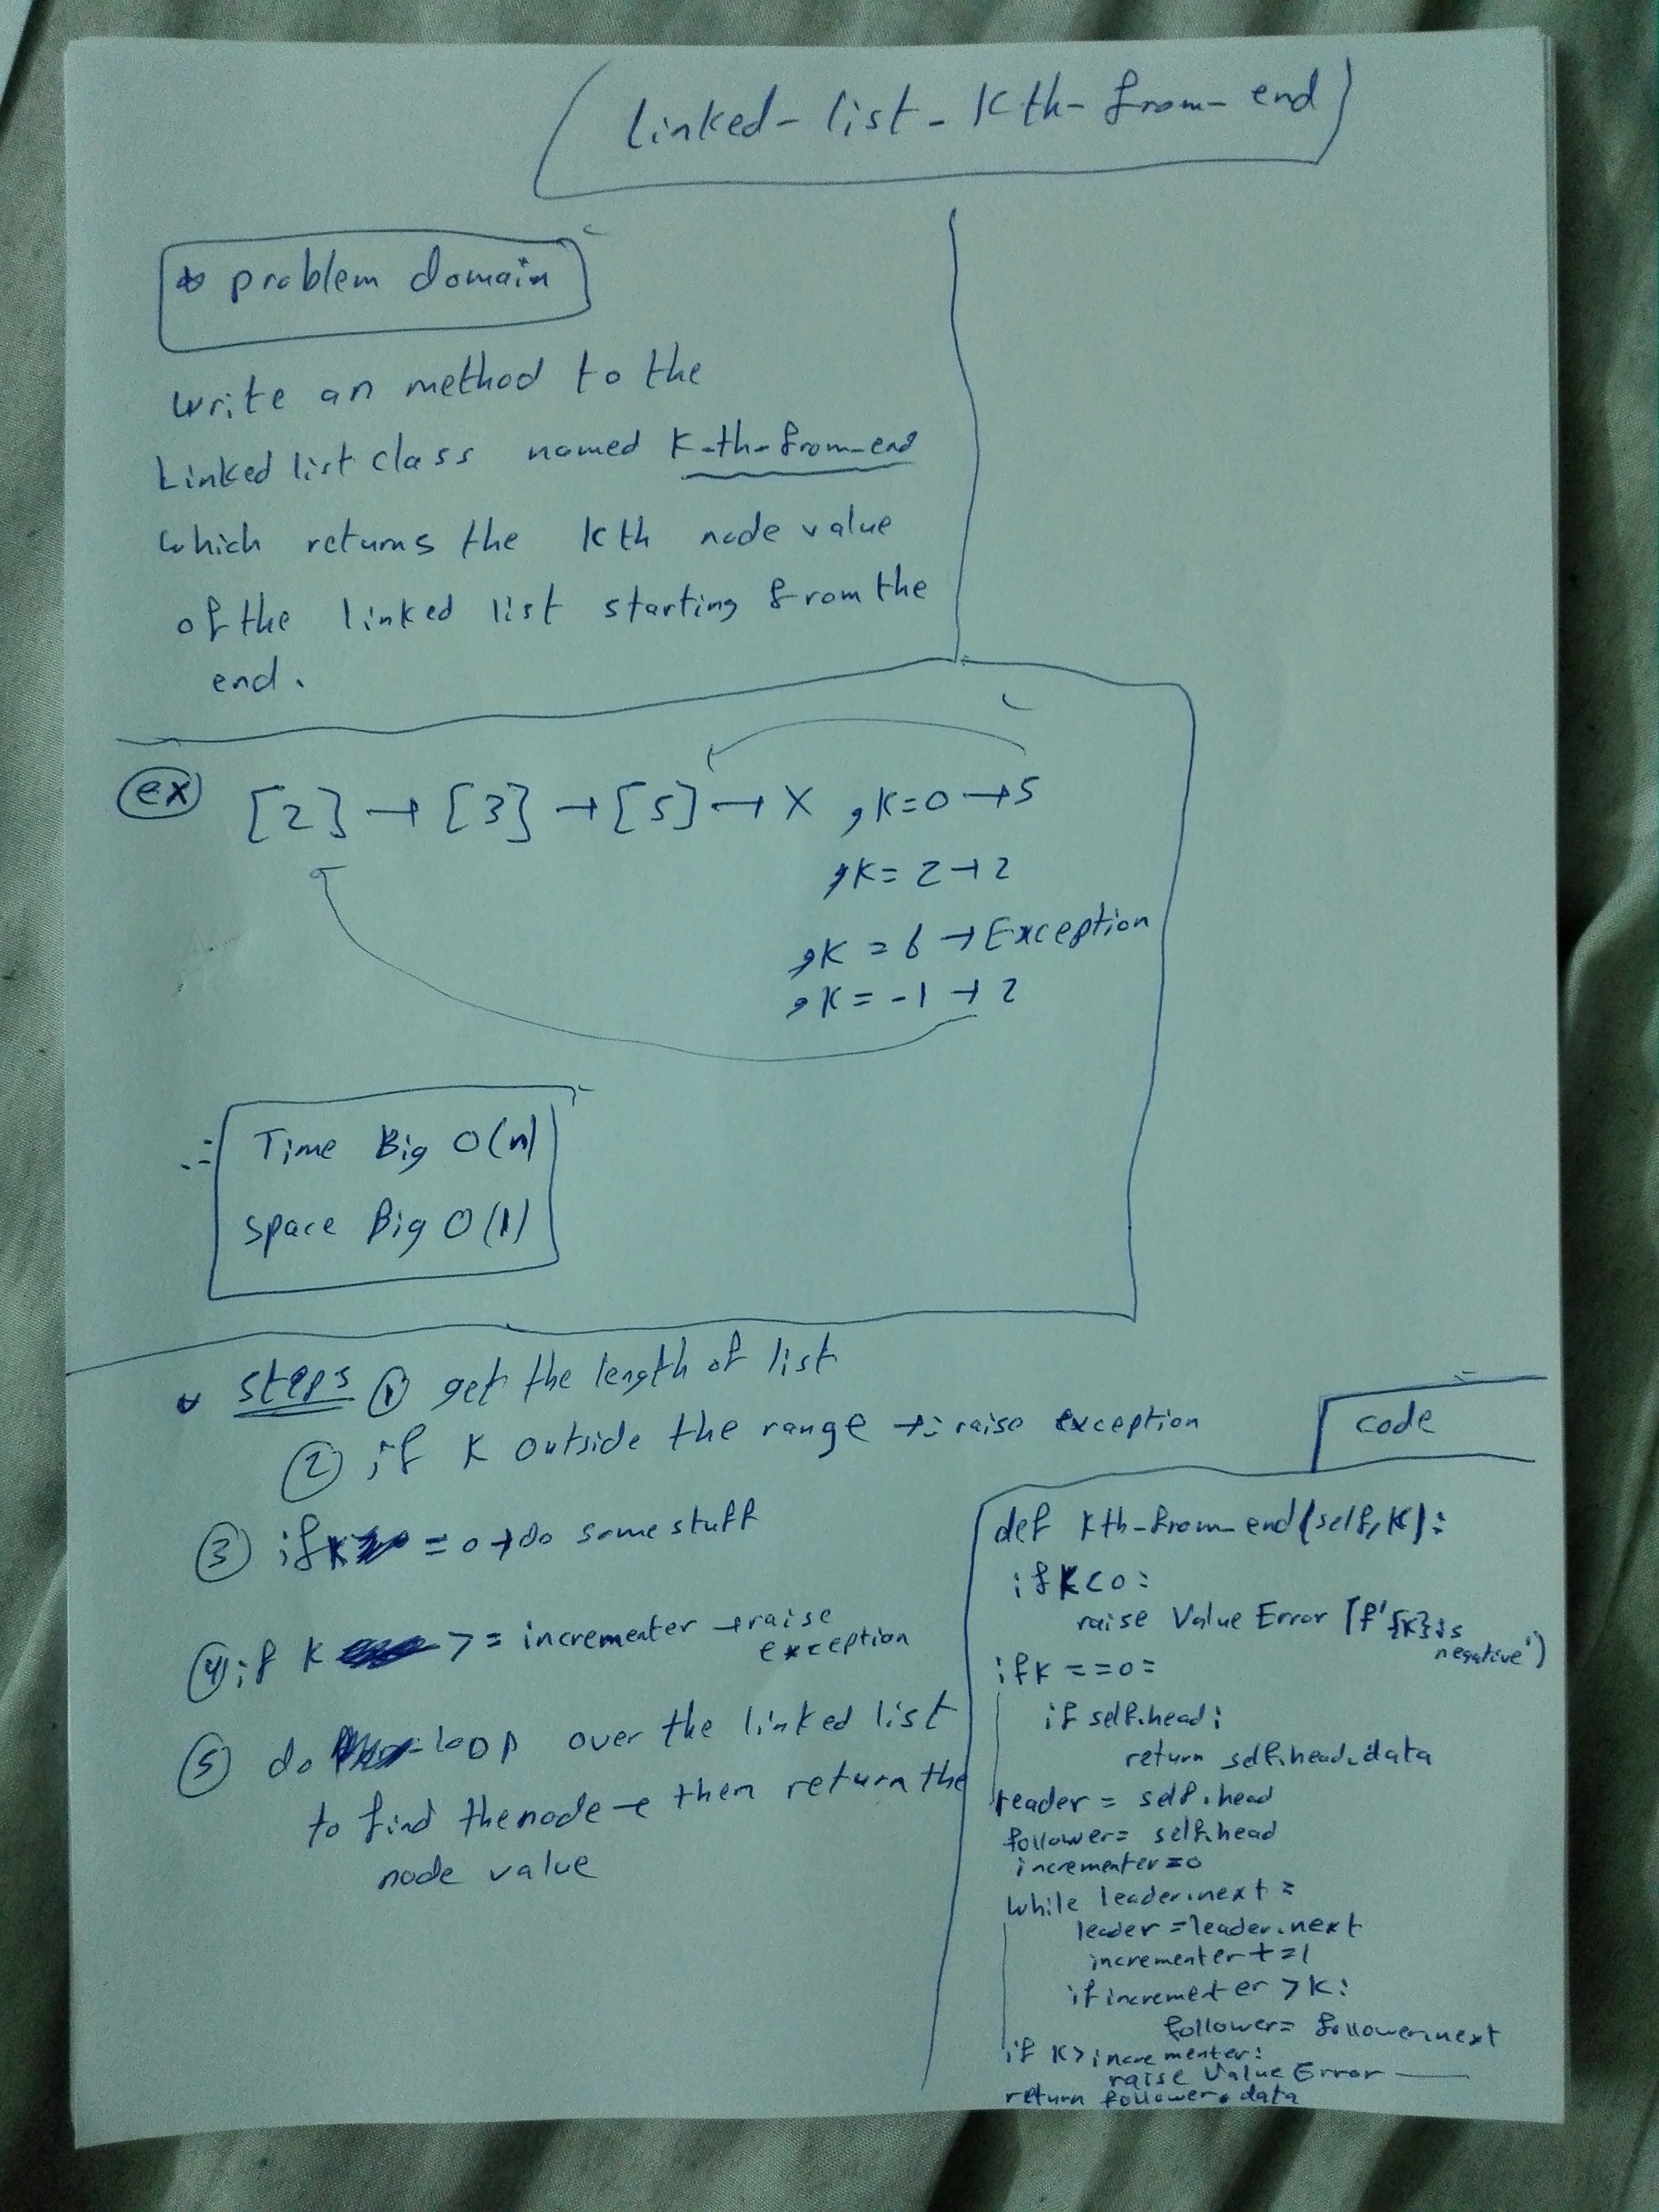 linked-list-Kth-from-end
* problem domain
write an method to the
Linked list class named K-th-from-end
which returns the Kth node value
of the linked list starting from the
end.
ex [2] → [3] → [5] → X , K=0 → 5
, K= 2 → 2
, K = 6 → Exception
, K = -1 → 2
Time Big O(n)
space Big O(1)
steps ① get the length of list
② if K outside the range →: raise exception
③ if K = 0 → do some stuff
④ if K >= incrementer → raise
exception
⑤ do loop over the linked list
to find the node → then return the
node value
code
def Kth-from-end(self, K):
if K < 0:
raise Value Error (f'{K} is
negative')
if K == 0:
if self.head:
return self.head.data
leader = self.head
follower = self.head
incrementer = 0
while leader.next :
leader = leader.next
incrementer += 1
if incrementer > K:
follower = follower.next
if K > incrementer:
raise Value Error
return follower.data